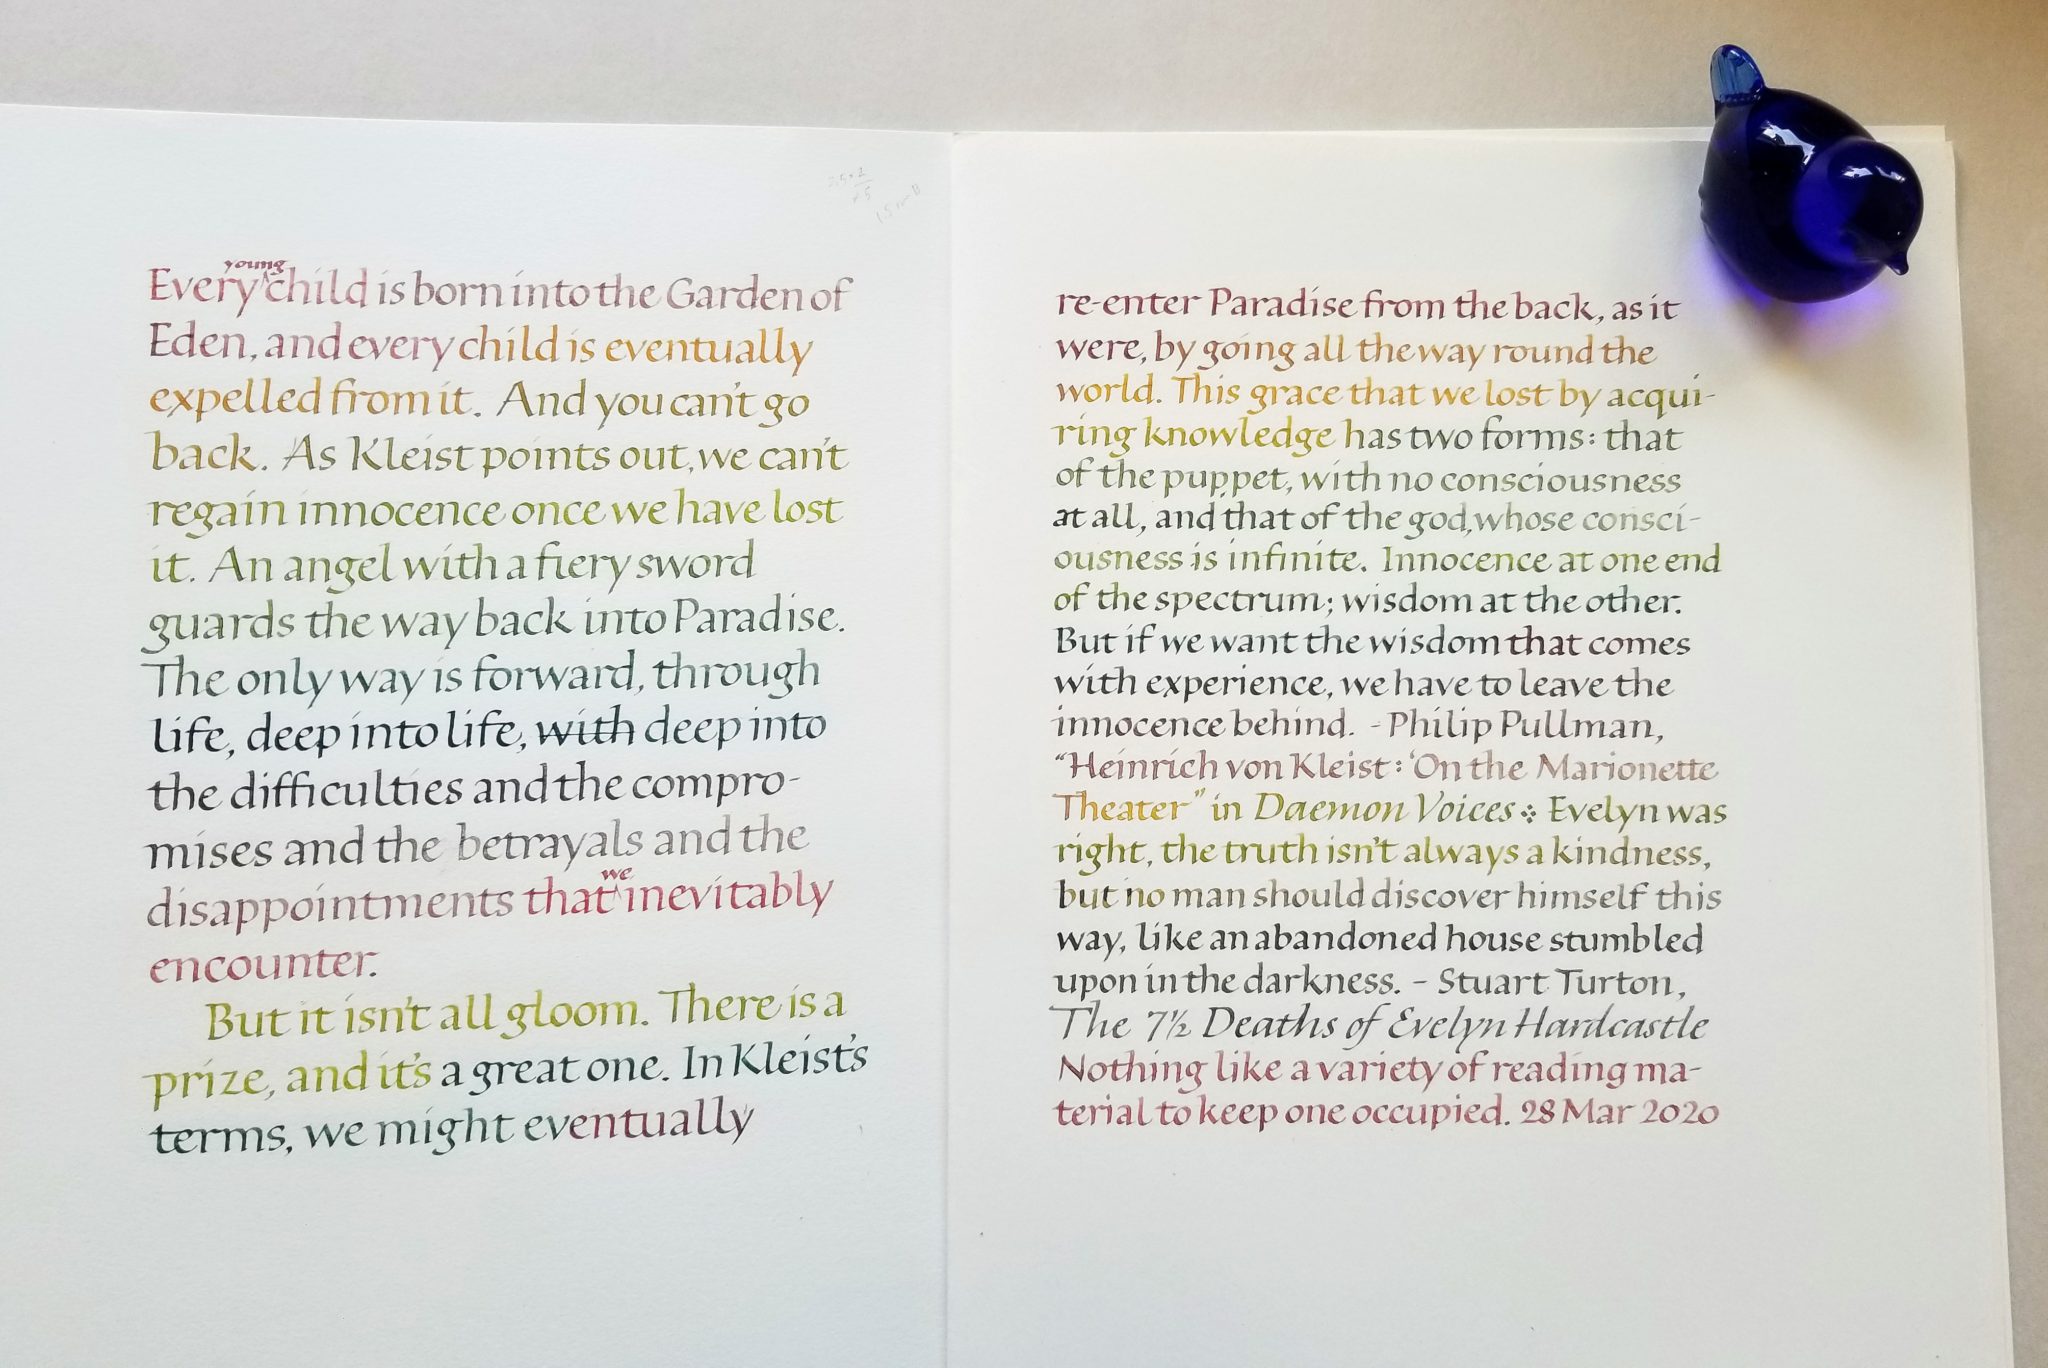 Every young child is born into the Garden of
Eden, and every child is eventually
expelled from it. And you can't go
back. As Kleist points out, we can't
regain innocence once we have lost
it. An angel with a fiery sword
guards the way back into Paradise.
The only way is forward, through
life, deep into life, with deep into
the difficulties and the compro-
mises and the betrayals and the
disappointments that we inevitably
encounter.
But it isn't all gloom. There is a
prize, and it's a great one. In Kleist's
terms, we might eventually
re-enter Paradise from the back, as it
were, by going all the way round the
world. This grace that we lost by acqui-
ring knowledge has two forms: that
of the puppet, with no consciousness
at all, and that of the god, whose consci-
ousness is infinite. Innocence at one end
of the spectrum; wisdom at the other.
But if we want the wisdom that comes
with experience, we have to leave the
innocence behind. - Philip Pullman,
"Heinrich von Kleist: 'On the Marionette
Theater" in Daemon Voices ⁘ Evelyn was
right, the truth isn't always a kindness,
but no man should discover himself this
way, like an abandoned house stumbled
upon in the darkness. - Stuart Turton,
The 7½ Deaths of Evelyn Hardcastle
Nothing like a variety of reading ma-
terial to keep one occupied. 28 Mar 2020